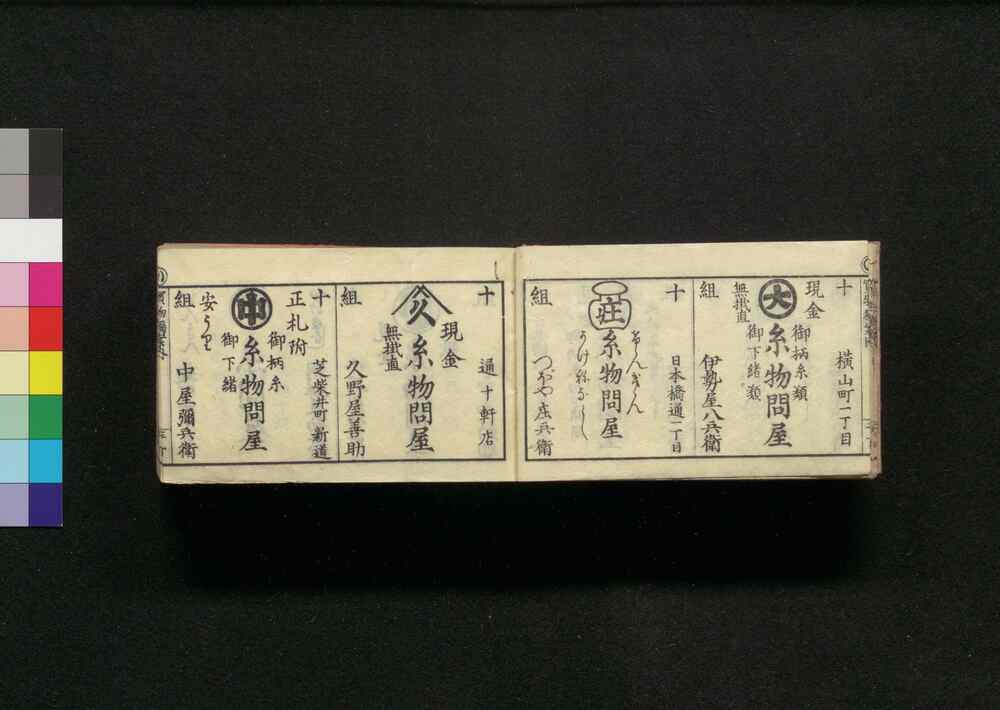 十
横山町一丁目
現金
御柄糸類
大
糸物問屋
御下緒類
無掛直
組
伊勢屋八兵衛
十
日本橋通一丁目
げんきん
荘
糸物問屋
かけねなし
組
つぼや庄兵衛
十
通十軒店
現金
久
糸物問屋
無掛直
組
久野屋善助
十
芝柴井町新道
正札附
御柄糸
中
糸物問屋
御下緒
安うり
組
中屋彌兵衛